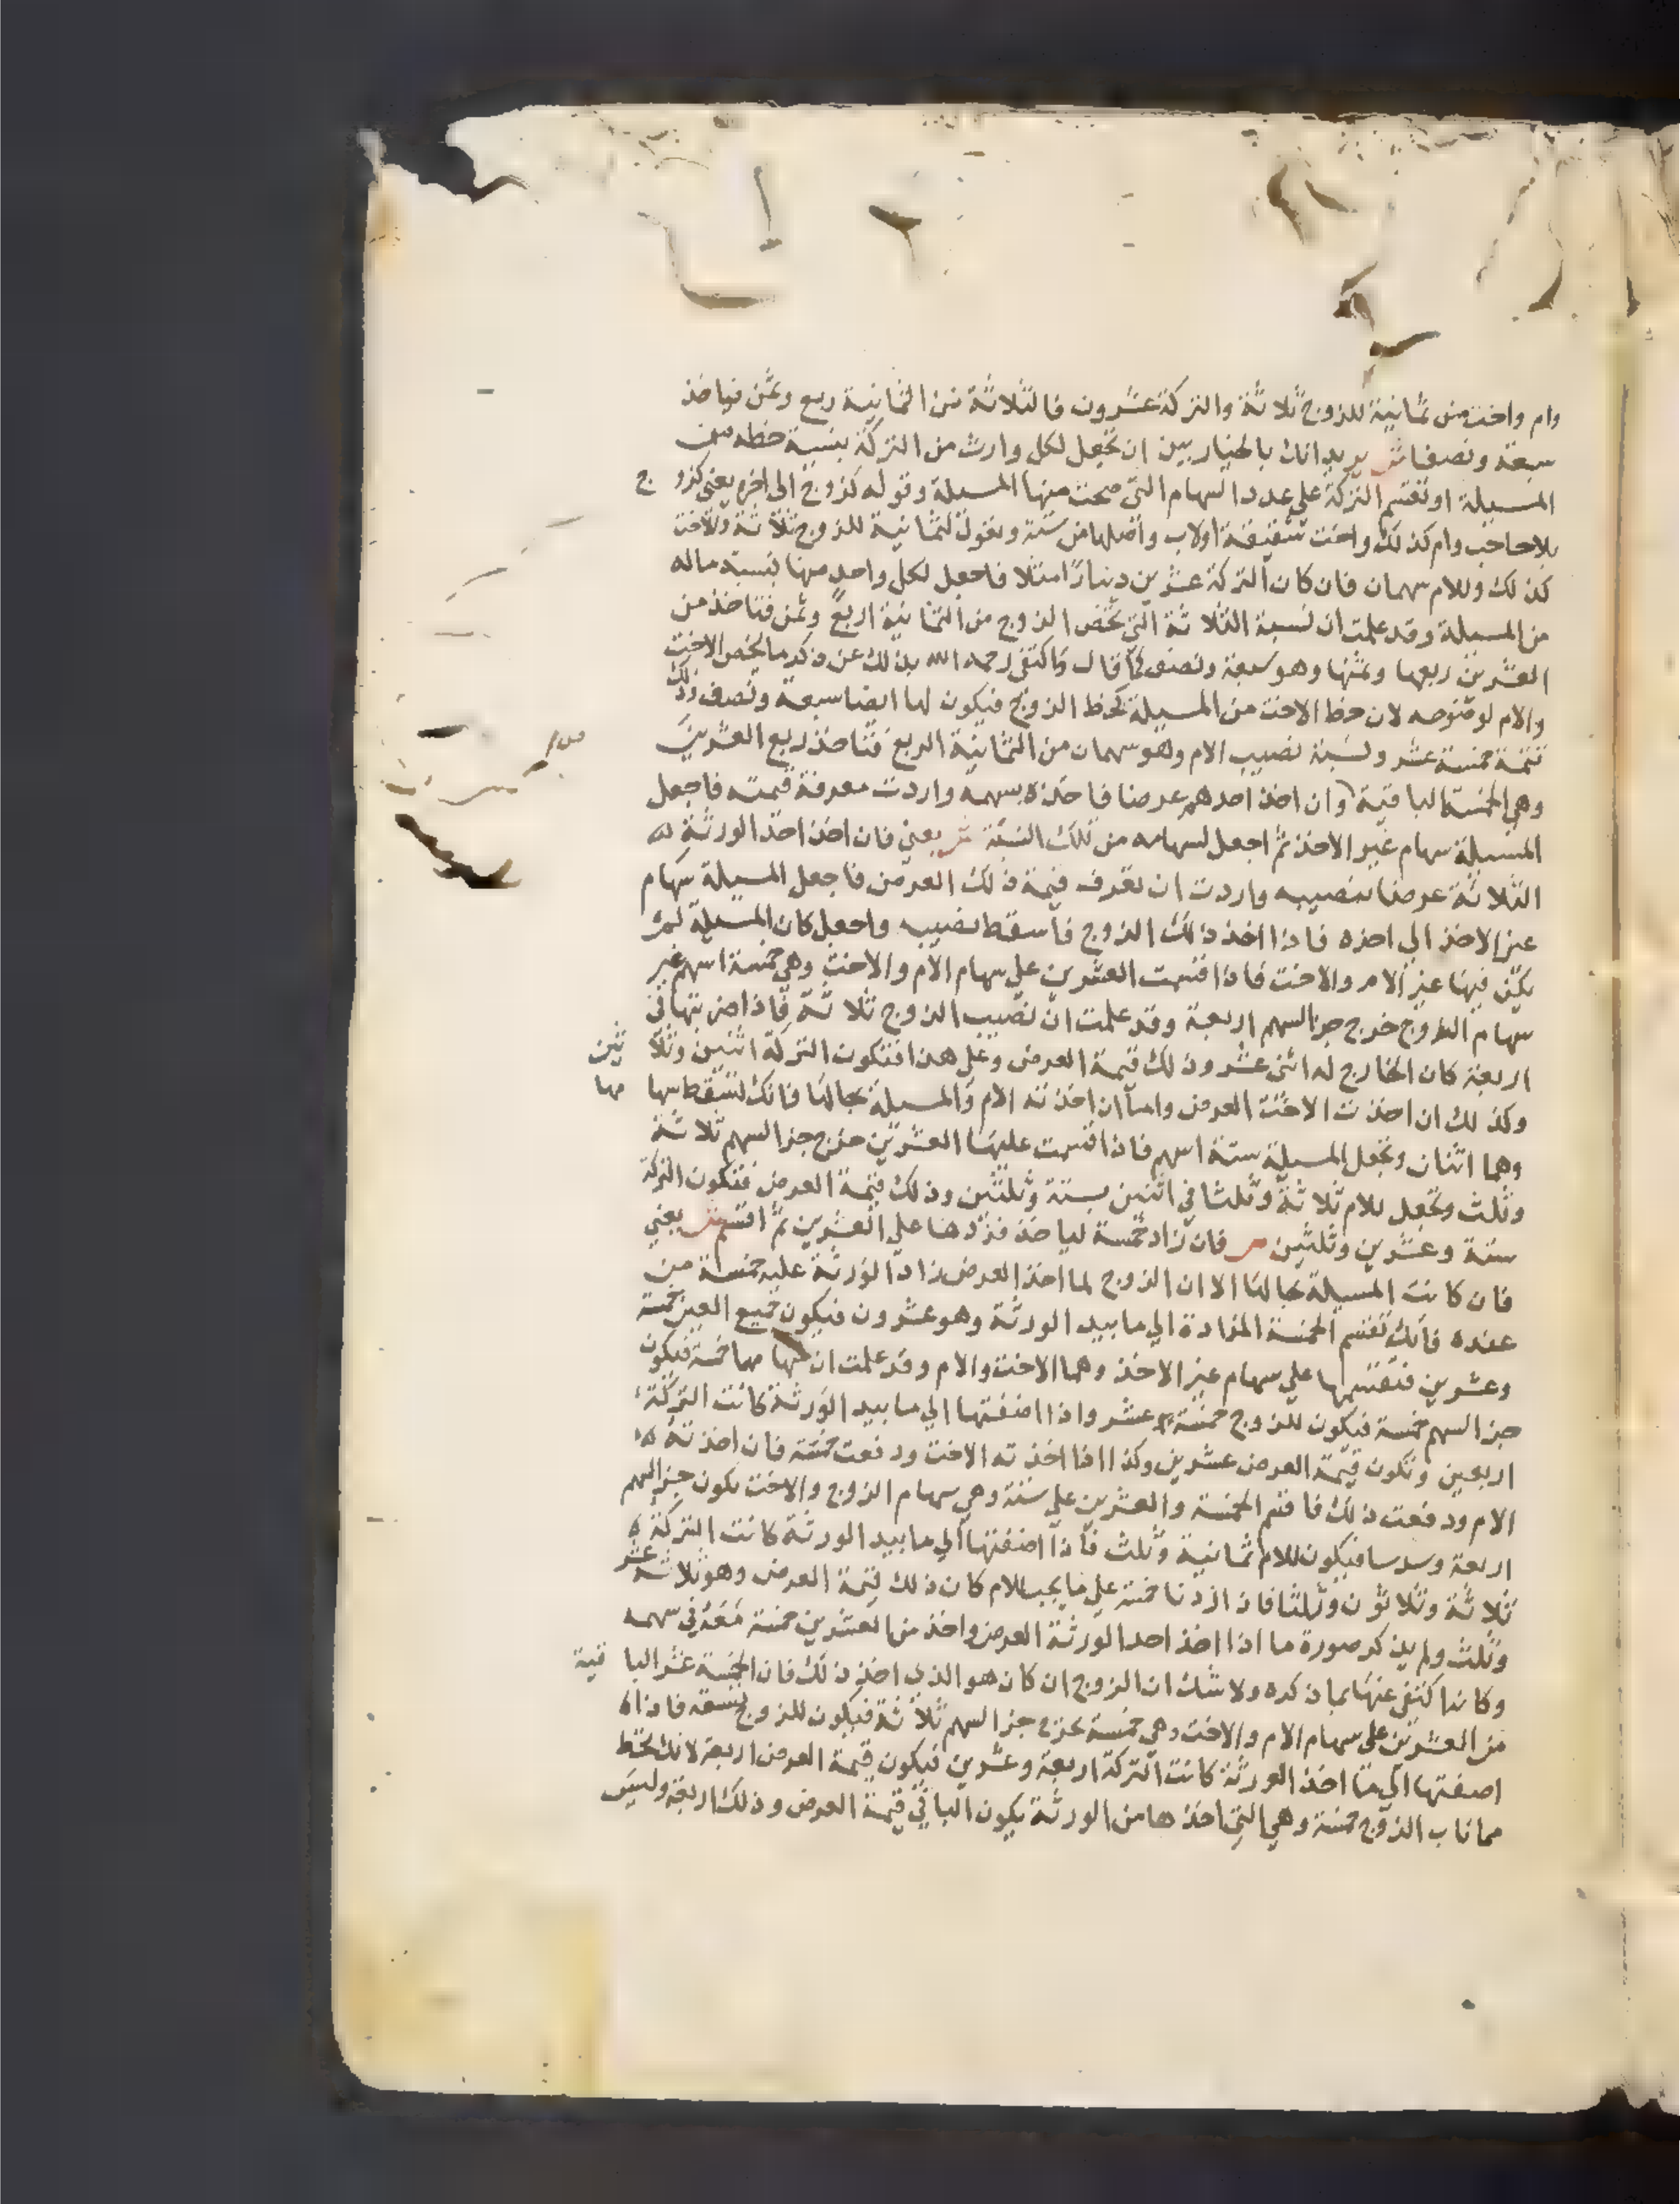 وام واخت من ثمانية للزوج ثلاثة والتركة عشرون فالثلاثة من الثمانية ربع وثمن فياخذ
سبعة ونصفا ش يريد انك بالخيار بين ان تجعل لكل وارث من التركة بنسبة حظه من
المسيلة او تقسم التركة على عدد السهام التي صحت منها المسيلة وقوله كزوج الى اخره يعني كزوج
بلا حاجب وام كذلك واخت شقيقة او لاب واصلها من ستة وتعول لثمانية للزوج ثلاثة وللاخت
كذلك وللام سهمان فان كان التركة عشرين دينارا مثلا فاجعل لكل واحد منها بنسبة ماله
من المسيلة وقد علمت ان نسبة الثلاثة التي تخص الزوج من الثمانية الربع وثمن فتاخذ من
العشرين ربعها وثمنها وهو سبعة ونصف كما قال واكتفى رحمه الله بذلك عن ذكر ما يخص الاخت
والام لوضوحه لان حظ الاخت من المسيلة كحظ الزوج فيكون لها ايضا سبعة ونصف وذلك
تتمة خمسة عشر ونسبة نصيب الام وهو سهمان من الثمانية الربع فتاخذ ربع العشرين
وهي الخمسة الباقية وان اخذ احدهم عرضا فاخذه بسهمه واردت معرفة قيمته فاجعل
المسيلة سهام غير الاخذ ثم اجعل لسهامه من تلك النسبة ش يعني فان اخذ احد الورثة
الثلاثة عرضا بنصيبه واردت ان تعرف قيمة ذلك العرض فاجعل المسيلة سهام
غير الاخذ الى اخره فاذا اخذ ذلك الزوج فاسقط نصيبه واجعل كان المسيلة لم
يكن فيها غير الام والاخت فاذا قسمت العشرين على سهام الام والاخت وهي خمسة اسهم غير
سهام الزوج خرج جزء السهم اربعة وقد علمت ان نصيب الزوج ثلاثة فاذا ضربتها في
اربعة كان الخارج له اثنى عشر وذلك قيمة العرض وعلى هذا فتكون التركة اثنين وثلاثين
وكذلك ان اخذت الاخت العرض واما ان اخذته الام والمسيلة بحالها فانك تسقط سهامها
وهما اثنان وتجعل المسيلة ستة اسهم فاذا قسمت عليها العشرين خرج جزء السهم ثلاثة
وثلث وتجعل للام ثلاثة وثلثا في اثنين بستة وثلثين وذلك قيمة العرض فتكون التركة
ستة وعشرين وثلثين ص فان زاد خمسة لياخذ فزدها على العشرين ثم اقسم ش يعني
فان كانت المسيلة بحالها الا ان الزوج لما اخذ العرض زاد الورثة عليه خمسة من
عنده فانك تقسم الخمسة المزادة الى ما بيد الورثة وهو عشرون فيكون جميع العين خمسة
وعشرين فتقسمها على سهام غير الاخذ وهما الاخت والام وقد علمت ان سهامهما خمسة فيكون
جزء السهم خمسة فيكون للزوج خمسة عشر واذا اضفتها الى ما بيد الورثة كانت التركة
اربعين وتكون قيمة العرض عشرين وكذا اذا اخذته الاخت ودفعت خمسة فان اخذته
الام ودفعت ذلك فاقسم الخمسة والعشرين على ستة وهي سهام الزوج والاخت يكون جزء السهم
اربعة وسدسا فيكون للام ثمانية وثلث فاذا اضفتها الى ما بيد الورثة كانت التركة
ثلاثة وثلاثون وثلثا فاذا زدنا خمسة على ما يجب للام كان ذلك قيمة العرض وهو ثلاثة عشر
وثلث ولم يذكر صورة ما اذا اخذ احد الورثة العرض واخذ من العشرين خمسة معه في سهمه
وكانه اكتفى عنها بما ذكره ولا شك ان الزوج ان كان هو الذي اخذ ذلك فان الخمسة عشر الباقية
من العشرين على سهام الام والاخت وهي خمسة يخرج جزء السهم ثلاثة فيكون للزوج تسعة فاذا
اضفتها الى ما اخذ الورثة كانت التركة اربعة وعشرين فيكون قيمة العرض اربعة لانك تحط
مما ناب الزوج خمسة وهي التي اخذها من الورثة يكون الباقي قيمة العرض وذلك اربعة وليس